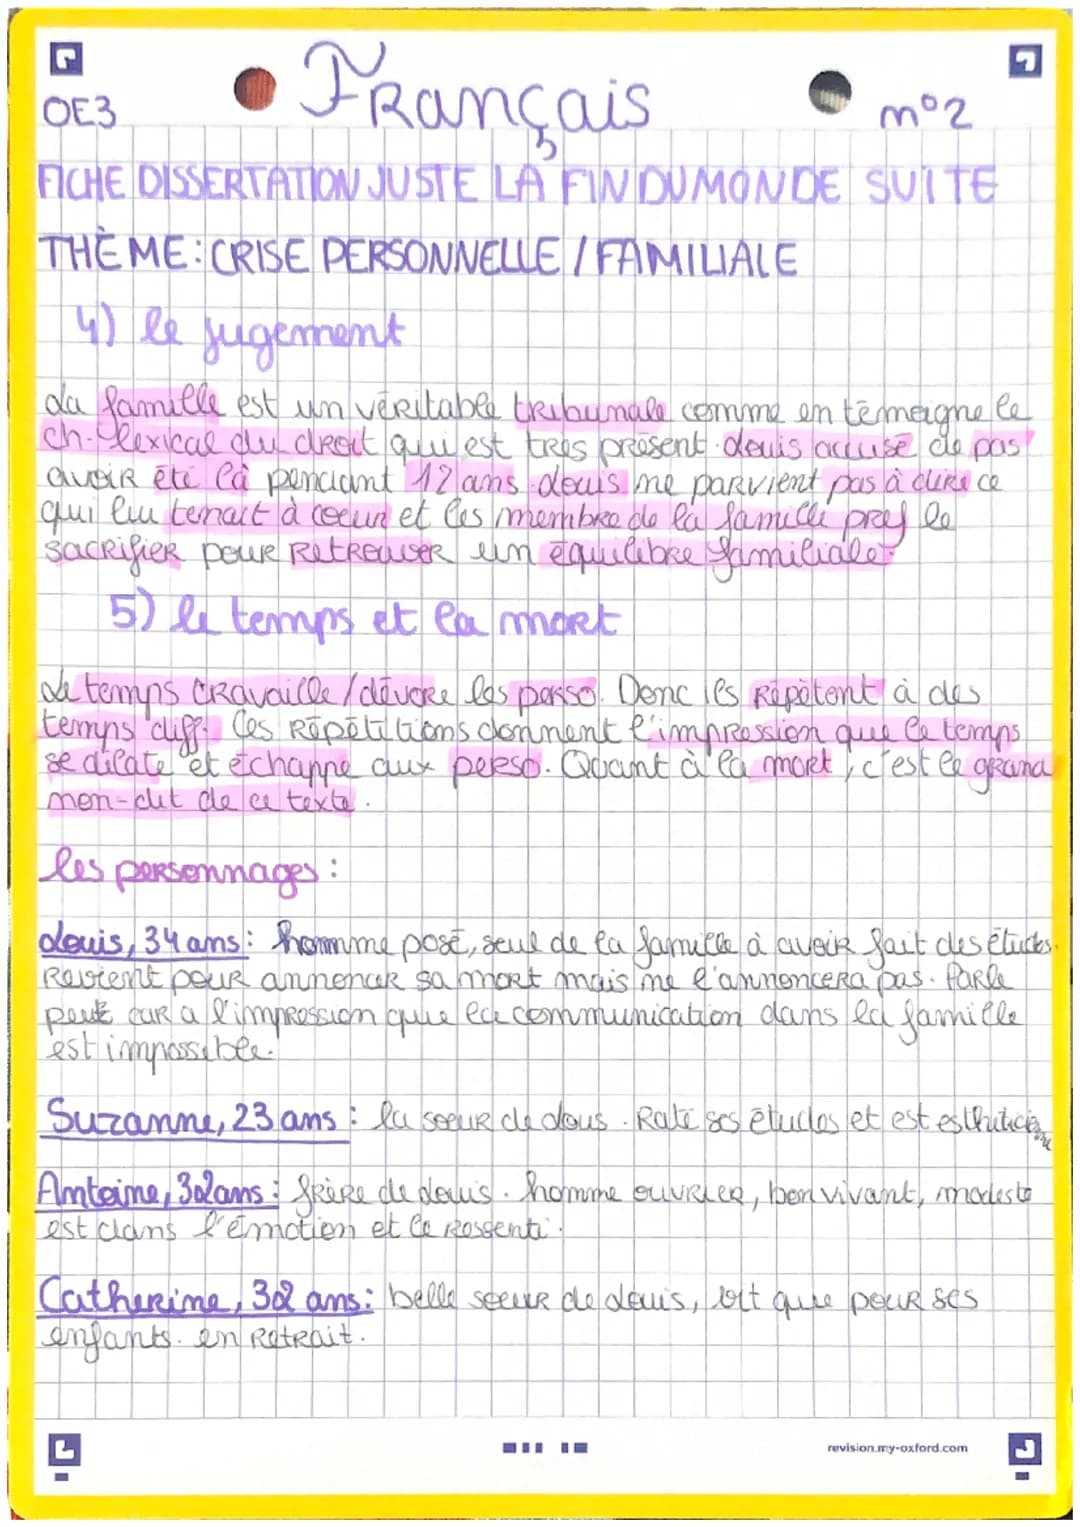 OE3
Français
n°2
FICHE DISSERTATION JUSTE LA FIN DU MONDE SUITE
THÈME : CRISE PERSONNELLE / FAMILIALE
4) le jugement
La famille est un véritable tribunale comme en témoigne le
ch. lexical du droit qui est très présent. Louis accusé de pas
avoir été là pendant 12 ans. Louis ne parvient pas à dire ce
qui lui tenait à coeur et les membre de la famille pref le
sacrifier pour retrouver un équilibre familiale.
5) le temps et la mort
Le temps travaille / dévore les perso. Donc ils répètent à des
temps diff. Ces répétitions donnent l'impression que le temps
se dilate et échappe aux perso. Quant à la mort, c'est le grand
non-dit de ce texte.
les personnages :
Louis, 34 ans : homme posé, seul de la famille à avoir fait des études.
Revient pour annoncer sa mort mais ne l'annoncera pas. Parle
peut car a l'impression que la communication dans la famille
est impossible.
Suzanne, 23 ans : la soeur de Lous. Rate ses études et est esthéticienne
Antoine, 32 ans : frère de Louis. homme ouvrier, bon vivant, modeste
est dans l'émotion et le ressenti.
Catherine, 32 ans : belle soeur de Louis, vit que pour ses
enfants. en retrait.
revision.my-oxford.com